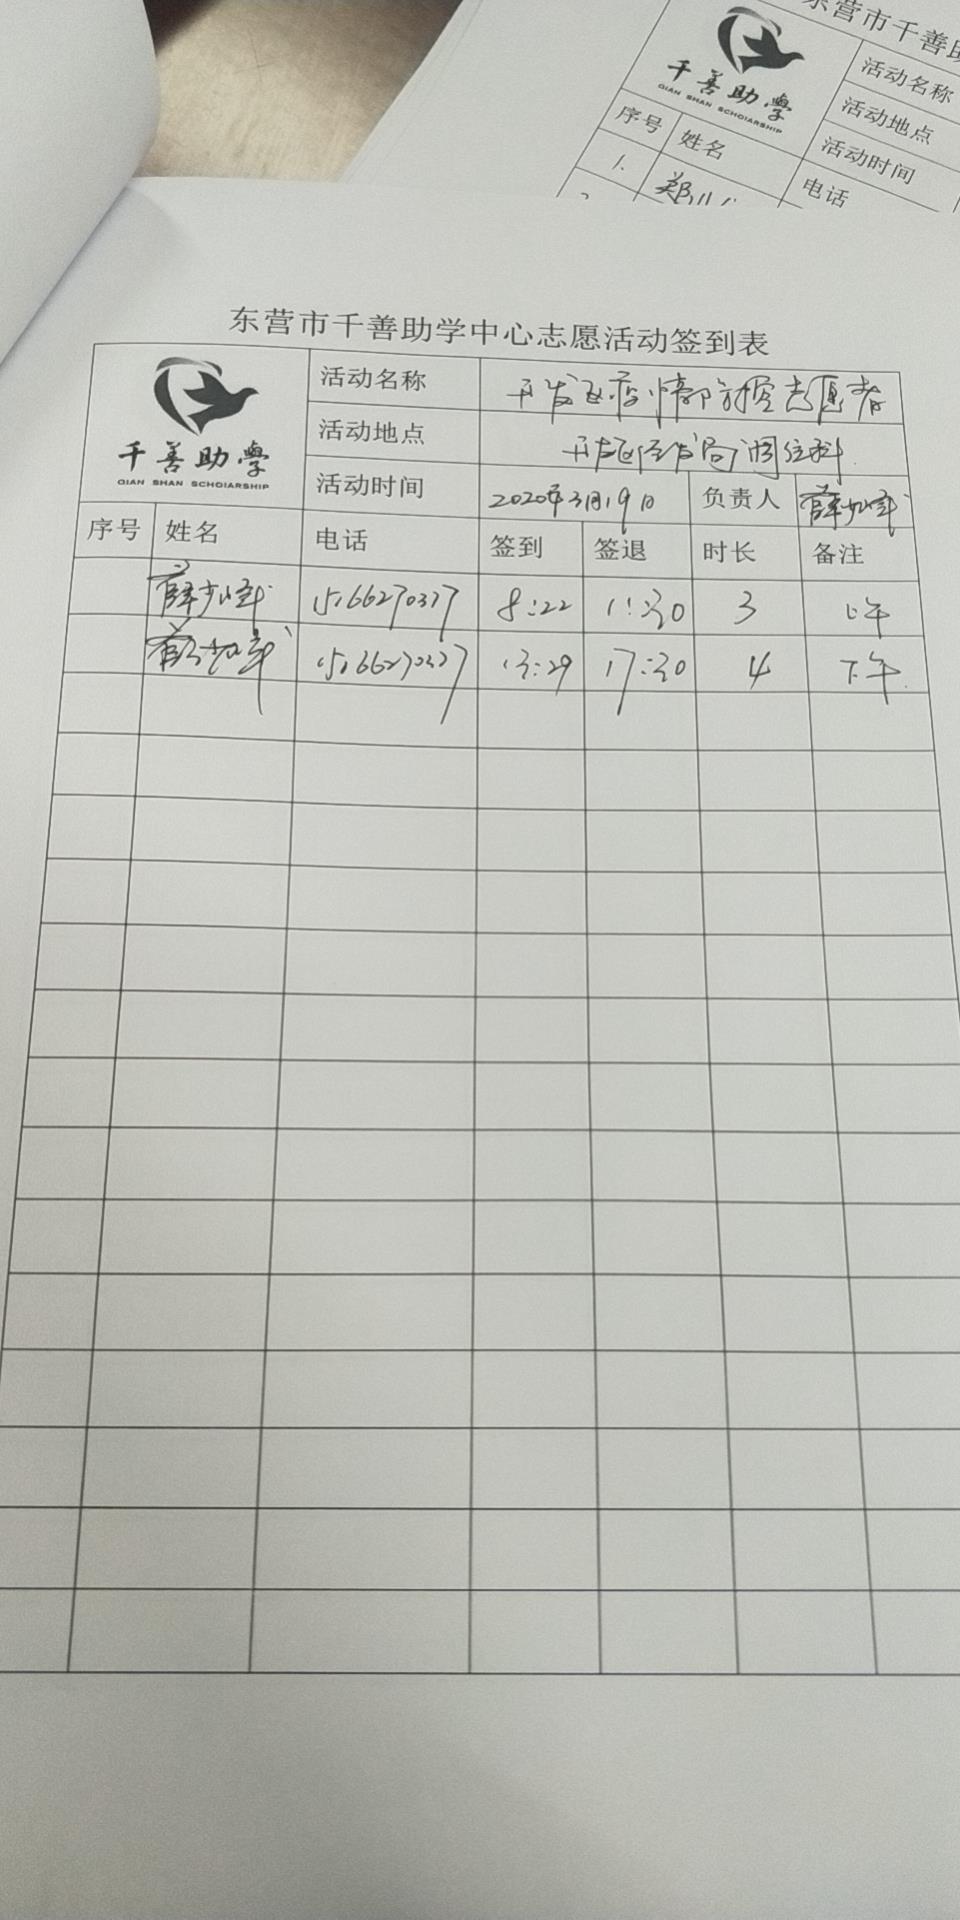 东营市千善助
千善助学
QIAN SHAN SCHOIARSHIP
活动名称
活动地点
活动时间
序号 姓名 电话
1. 郑
2
东营市千善助学中心志愿活动签到表
千善助学
QIAN SHAN SCHOIARSHIP
活动名称 开发区疫情防控志愿者
活动地点 开发区经发局
活动时间 2020年3月19日 负责人
序号 姓名 电话 签到 签退 时长 备注
15166270377 8:22 11:30 3 上午
15166270377 13:29 17:30 4 下午